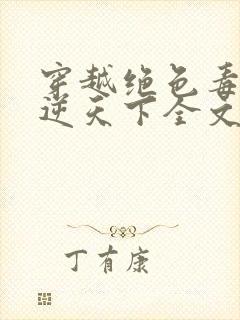 穿越绝色毒
逆天下全文
丁有康